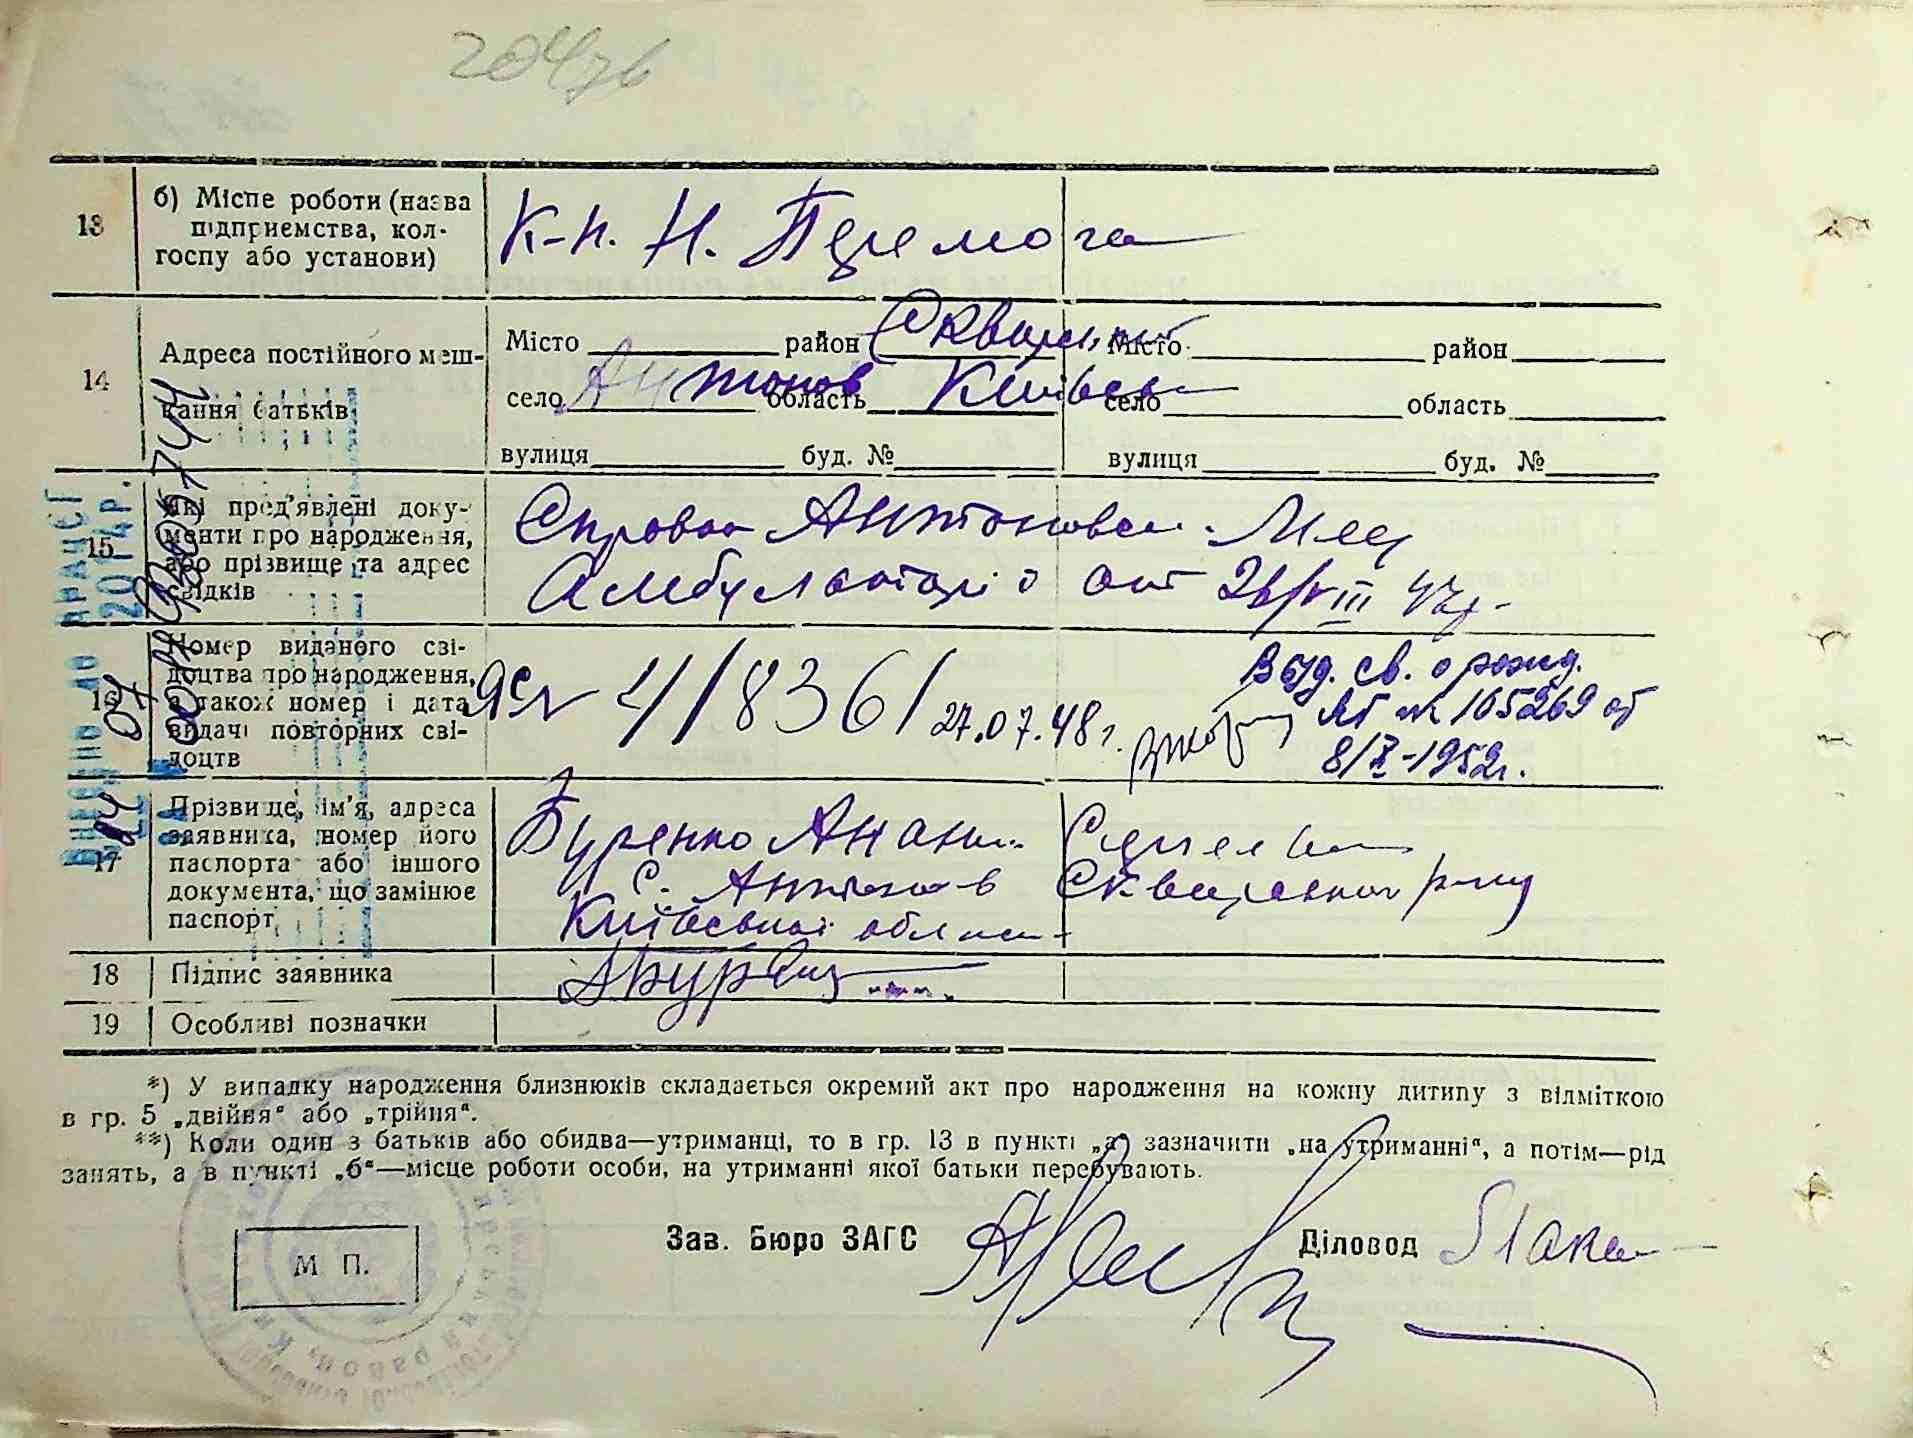 13
б) Місце роботи (назва
підприємства, кол-
госпу або установи)
К-п. Н. Перемога
14
Адреса постійного меш-
кання батьків
Місто район Сквирський
село Антонов область Київсь
вулиця буд. №
Місто район
село область
вулиця буд. №
15
Які пред'явлені доку-
менти про народження,
або прізвище та адрес
свідків
Справка Антоновсь. Мед
Амбулаторії от 26/VIII 47р.
16
Номер виданого сві-
доцтва про народження,
а також номер і дата
видачі повторних сві-
доцтв
418361 27.07.48 г.
Выд. св. о рожд.
№ 165269 от
8/X-1952г.
17
Прізвище, ім'я, адреса
заявника, номер його
паспорта або іншого
документа, що замінює
паспорт
Буренко Анани
с. Антонов Сквирського р-ну
Київської област
18
Підпис заявника
19
Особливі позначки
ВНЕСЕНО ДО ДРАЦСГ
04 07 2014 р.
00005744
*) У випадку народження близнюків складається окремий акт про народження на кожну дитину з відміткою
в гр. 5 „двійня" або „трійня".
**) Коли один з батьків або обидва—утриманці, то в гр. 13 в пункті „а" зазначити „на утриманні", а потім—рід
занять, а в пункті „б"—місце роботи особи, на утриманні якої батьки перебувають.
М П.
Зав. Бюро ЗАГС
Діловод